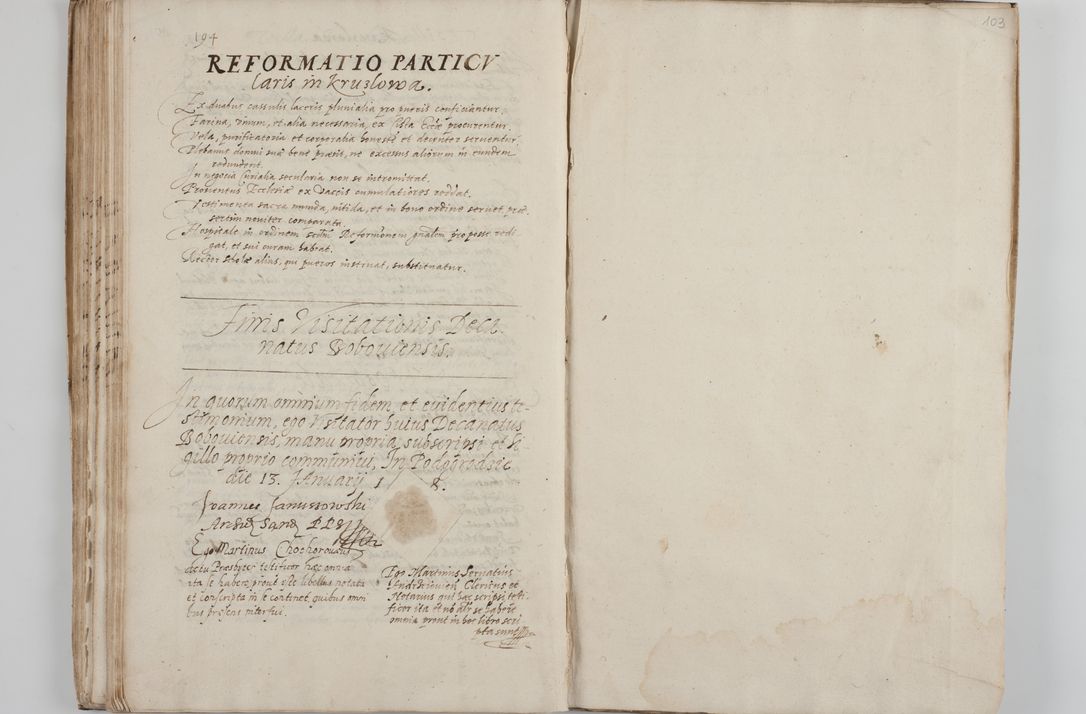 194
REFORMATIO PARTICV
laris in Kruzlowa.
Ex duabus cassulis laceris plunialia pro pueris conficiantur.
Farina, vinum, et alia necessaria, ex Cista Eccliae procurentur.
Vela, purificatoria et corporalia honeste et decenter serventur.
Plebanus domui suae bene praesit, ne excessus aliorum in eundem
redundent.
In negocia Curialia secularia non se intromittat.
Proventus Ecclesiae ex vaccis cumulatiores reddat.
Vestimenta sacra munda, nitida, et in bono ordine servet prae
sertim noviter comparata.
Hospitale in ordinem scdm Reformonem gnalem pro posse redi
gat, et sui curam habeat.
Rector scholae alius, qui pueros instruat, substituatur.
Finis Visitationis Deca
natus Bobouiensis.
In quorum omnium fidem et euidentius te-
stimonium, ego Visitator huius Decanatus
Bobouiensis, manu propria subscripsi et si
gillo proprio communiui, In Podgorodzie
die 13. Januarij 1 8.
Joannes Januszowski
Ego Martinus Chochorowski
Praesbyter testificor haec omnia
ita se habere, prout iste libellus notata
et conscripta in se continet, quibus omni
bus praesens interfui.
Ego Martinus
Clericus et
Notarius qui haec scripsi testi
ficor ita et non aliter se habere
omnia prout in hoc libro scri
pta sunt
103